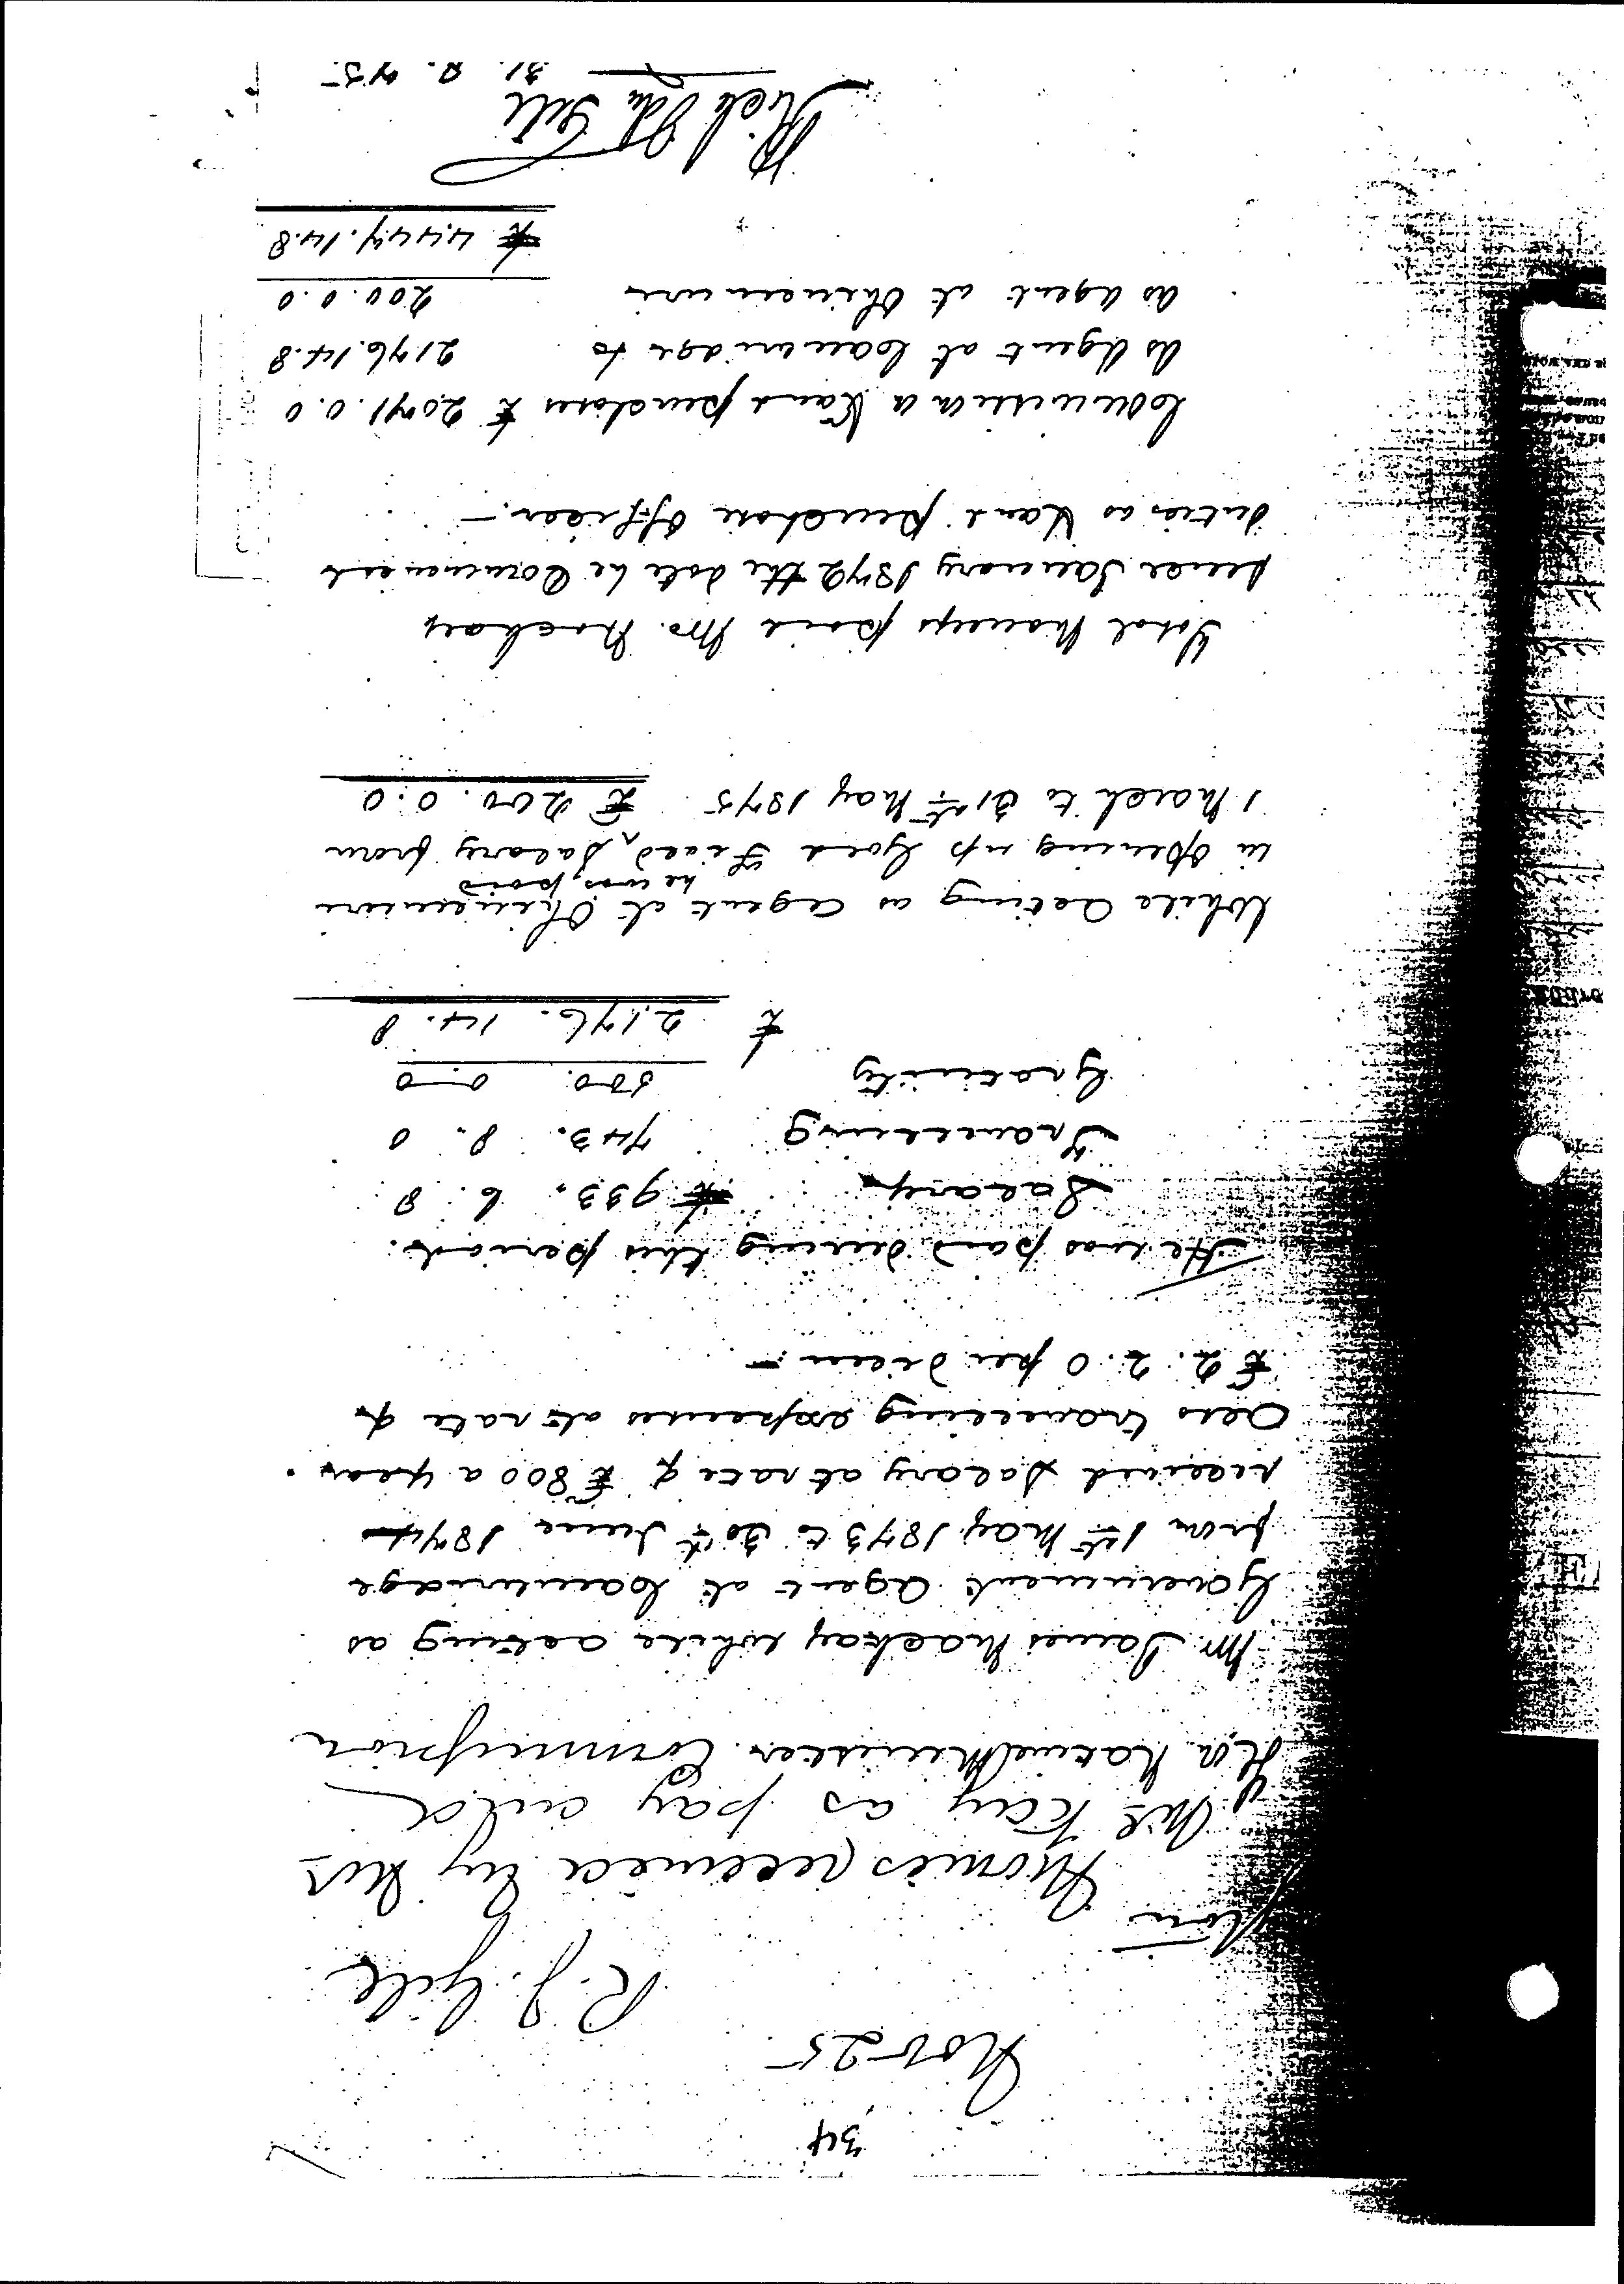 34
Nov 25
R. J. Gill
Monies received by Mr
McKay as pay and
Native Minister Commission
Mr. James Mackay while acting as
Government Agent at Coromandge
from 1st May 1873 to 30th June 1874
received salary at rate of £800 a year.
Also travelling expenses at rate of
£2.2.0 per diem —
He was paid during this period.
Salary £933. 6. 8
Travelling 743. 8. 0
Gratuity 500. 0. 0
£ 2176. 14. 8
While acting as agent at Ohinemuri
he was paid
in opening up Gold Field, salary from
1 March to 31st May 1875 £200. 0. 0
Total Moneys paid Mr. Mackay
since January 1872 the date he commenced
duties as Land Purchase Officer. —
Commission on Land purchases £2071. 0. 0
As Agent at to 2176. 14. 8
As agent at Ohinemuri 200. 0. 0
£ 4.447. 14. 8
Rich Jn Gill
31. 8. 75